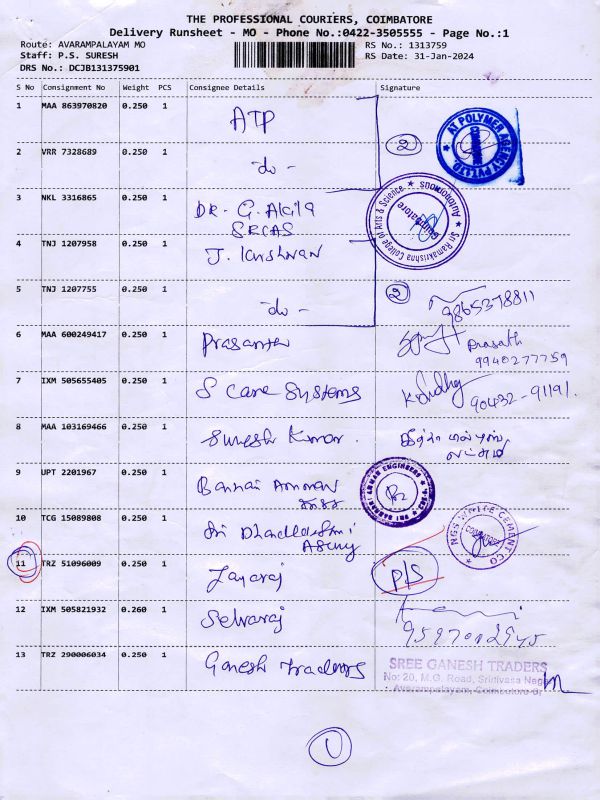 THE PROFESSIONAL COURIERS, COIMBATORE
Delivery Runsheet - MO - Phone No.:0422-3505555 - Page No.:1
Route: AVARAMPALAYAM MO RS No.: 1313759
Staff: P.S. SURESH RS Date: 31-Jan-2024
DRS No.: DCJB131375901
S No Consignment No Weight PCS Consignee Details Signature
1 MAA 863970820 0.250 1 ATP
AT POLYMER AGENCY PVT LTD
2
2 VRR 7328689 0.250 1 do -
3 NKL 3316865 0.250 1 DR. G. Akila
SRCAS
Sri Ramakrishna College of Arts & Science
Autonomous
Coimbatore
4 TNJ 1207958 0.250 1 J.
5 TNJ 1207755 0.250 1 do - 2 9865378811
6 MAA 600249417 0.250 1 Prasanth Prasath
9940277759
7 IXM 505655405 0.250 1 S Care Systems 90432-91191.
8 MAA 103169466 0.250 1 Suresh Kumar.
9 UPT 2201967 0.250 1 Bannari Amman
ENGINEERS
10 TCG 15089808 0.250 1 Sri
NGS WHITE CEMENT CO
COIMBATORE
11 TRZ 51096009 0.250 1 Jayaraj P/S
12 IXM 505821932 0.260 1 Selvaraj
13 TRZ 290006034 0.250 1 Ganesh Traders
SREE GANESH TRADERS
No: 20, M.G. Road, Srinivasa Nagar
Avarampalayam, Coimbatore-6.
1